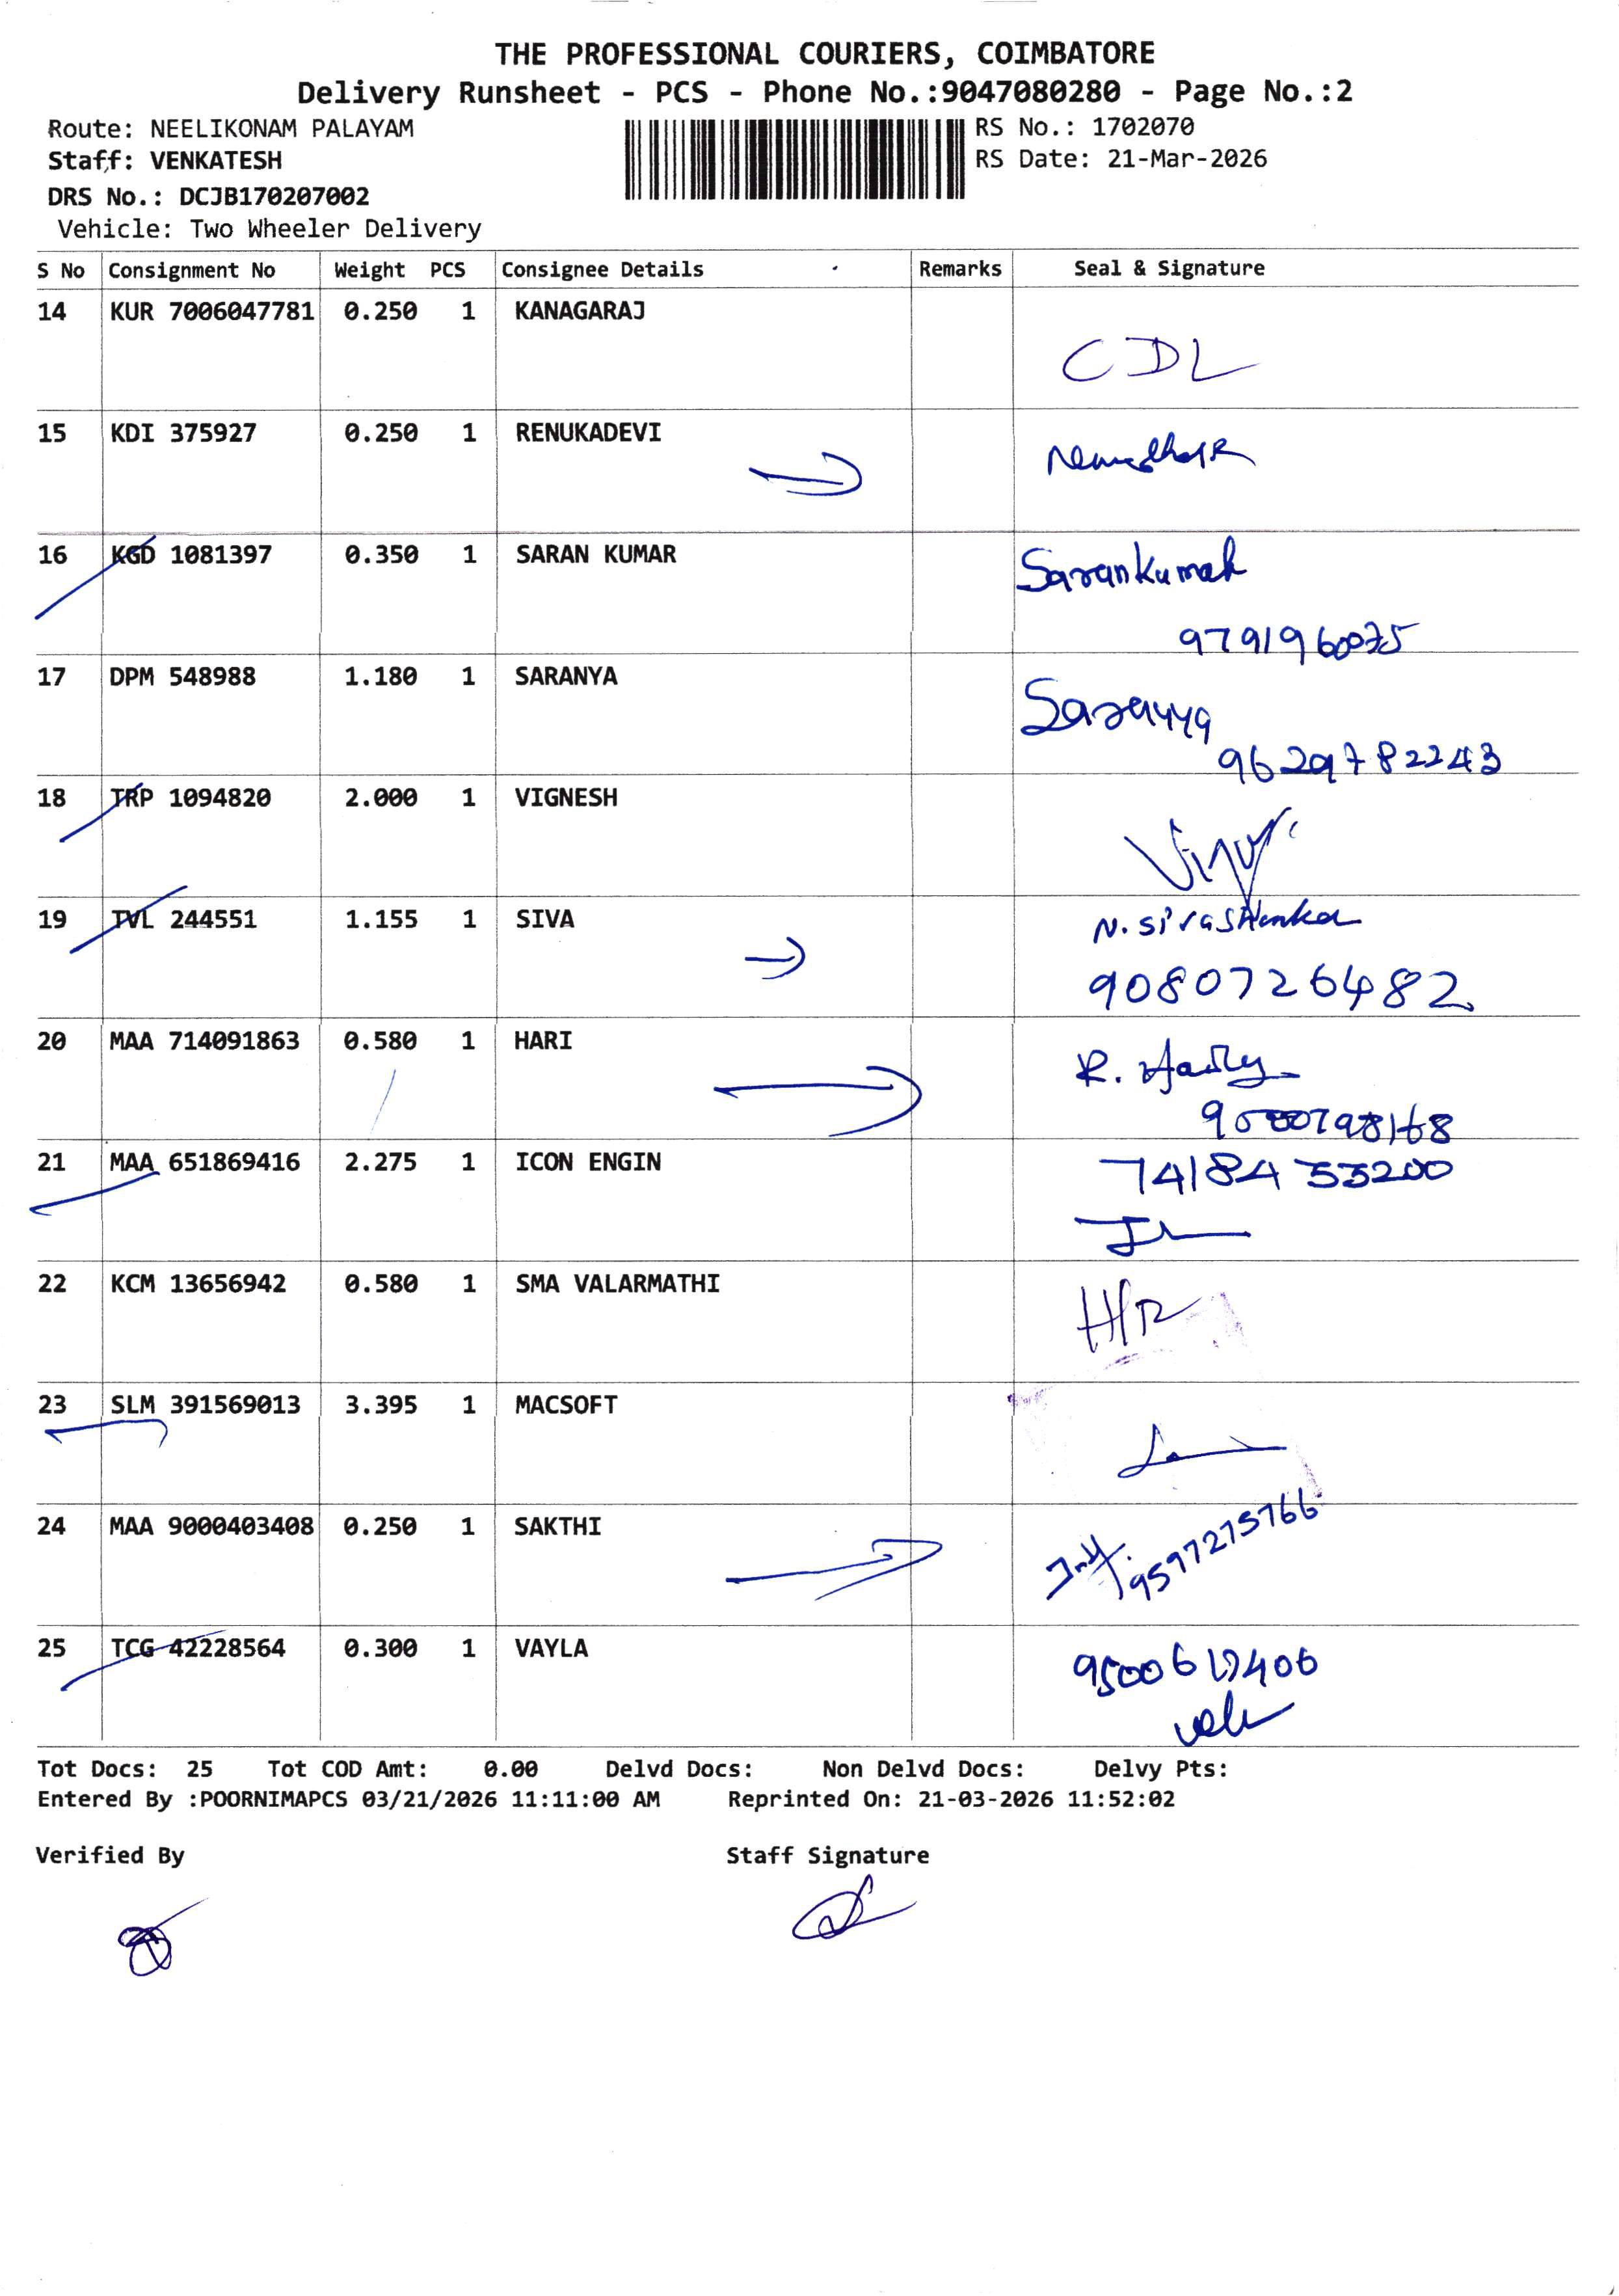 THE PROFESSIONAL COURIERS, COIMBATORE
Delivery Runsheet - PCS - Phone No.:9047080280 - Page No.:2
Route: NEELIKONAM PALAYAM
RS No.: 1702070
Staff: VENKATESH
RS Date: 21-Mar-2026
DRS No.: DCJB170207002
Vehicle: Two Wheeler Delivery
S No Consignment No Weight PCS Consignee Details Remarks Seal & Signature
14 KUR 7006047781 0.250 1 KANAGARAJ
CDL
15 KDI 375927 0.250 1 RENUKADEVI
16 KGD 1081397 0.350 1 SARAN KUMAR
Sarankumar
9791960075
17 DPM 548988 1.180 1 SARANYA
Saranya
9629782243
18 TRP 1094820 2.000 1 VIGNESH
19 TVL 244551 1.155 1 SIVA
N. Sivashanker
9080726482
20 MAA 714091863 0.580 1 HARI
R.
21 MAA 651869416 2.275 1 ICON ENGIN
7418453200
22 KCM 13656942 0.580 1 SMA VALARMATHI
23 SLM 391569013 3.395 1 MACSOFT
24 MAA 9000403408 0.250 1 SAKTHI
9597275766
25 TCG 42228564 0.300 1 VAYLA
Tot Docs: 25 Tot COD Amt: 0.00 Delvd Docs: Non Delvd Docs: Delvy Pts:
Entered By :POORNIMAPCS 03/21/2026 11:11:00 AM Reprinted On: 21-03-2026 11:52:02
Verified By Staff Signature